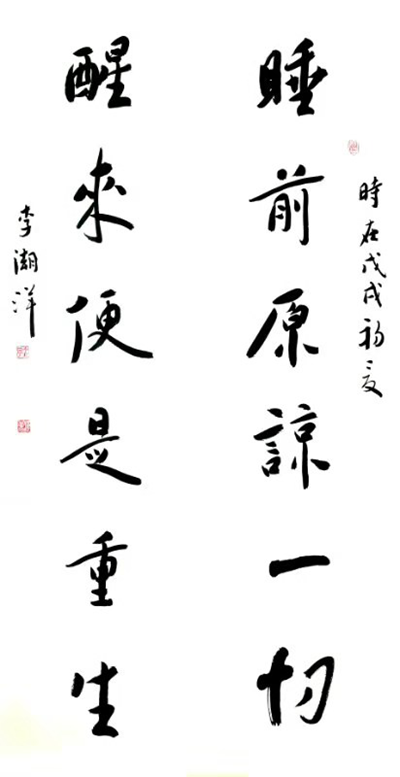 時在戊戌初夏
睡前原諒一切
醒來便是重生
李湖洋